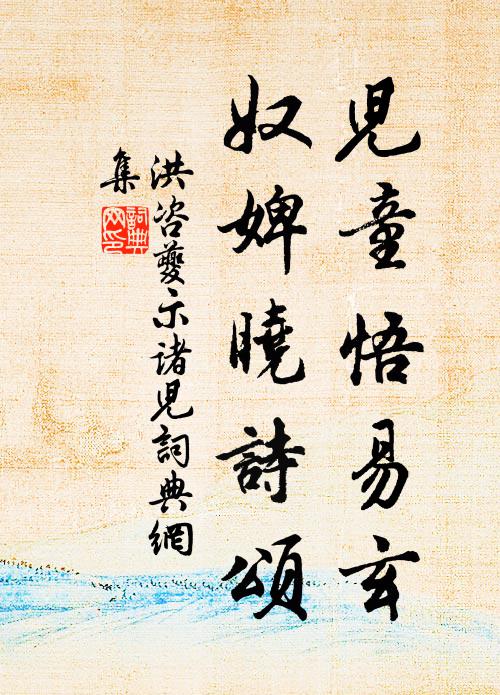 兒童悟易玄
奴婢曉詩頌
洪咨夔示諸兒詞典網
集
詞典
网印